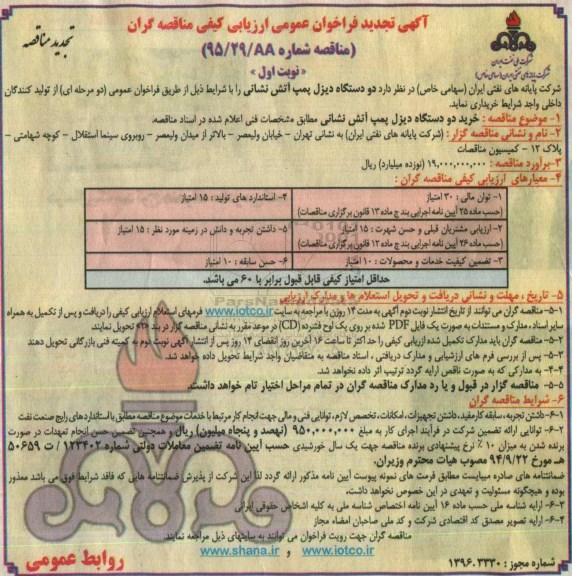 آگهی تجدید فراخوان عمومی ارزیابی کیفی مناقصه گران
(مناقصه شماره ۹۵/۲۹/AA)
« نوبت اول »
تجدید مناقصه
شرکت ملی نفت ایران
شرکت پایانه های نفتی ایران (سهامی خاص)
شرکت پایانه های نفتی ایران (سهامی خاص) در نظر دارد دو دستگاه دیزل پمپ آتش نشانی را با شرایط ذیل از طریق فراخوان عمومی (دو مرحله ای) از تولید کنندگان
داخلی واجد شرایط خریداری نماید.
۱- موضوع مناقصه : خرید دو دستگاه دیزل پمپ آتش نشانی مطابق مشخصات فنی اعلام شده در اسناد مناقصه.
۲- نام و نشانی مناقصه گزار : (شرکت پایانه های نفتی ایران) به نشانی تهران - خیابان ولیعصر - بالاتر از میدان ولیعصر - روبروی سینما استقلال - کوچه شهامتی -
پلاک ۱۲ - کمیسیون مناقصات
۳- برآورد مناقصه : ۱۹,۰۰۰,۰۰۰,۰۰۰ (نوزده میلیارد) ریال
۴- معیارهای ارزیابی کیفی مناقصه گران :
۱- توان مالی : ۳۰ امتیاز
(حسب ماده ۲۵ آیین نامه اجرایی بند ج ماده ۱۲ قانون برگزاری مناقصات)
۴- استاندارد های تولید : ۱۵ امتیاز
۲- ارزیابی مشتریان قبلی و حسن شهرت : ۱۵ امتیاز
(حسب ماده ۲۶ آیین نامه اجرایی بند ج ماده ۱۲ قانون برگزاری مناقصات)
۵- داشتن تجربه و دانش در زمینه مورد نظر : ۱۵ امتیاز
۳- تضمین کیفیت خدمات و محصولات : ۱۰ امتیاز
۶- حسن سابقه : ۱۰ امتیاز
حداقل امتیاز کیفی قابل قبول برابر با ۶۰ می باشد.
۵- تاریخ ، مهلت و نشانی دریافت و تحویل استعلام ها و مدارک ارزیابی
۵-۱- مناقصه گران می توانند از تاریخ انتشار نوبت دوم آگهی به مدت ۱۴ روز، با مراجعه به سایت www.iotco.ir فرمهای استعلام ارزیابی کیفی را دریافت و پس از تکمیل به همراه
سایر اسناد ، مدارک و مستندات به صورت یک فایل PDF شده بر روی یک لوح فشرده (CD) در موعد مقرر به نشانی مناقصه گزار در بند «۲» تحویل نمایند
۵-۲- مناقصه گران باید مدارک تکمیل شده ارزیابی کیفی را حداکثر تا ساعت ۱۶ آخرین روز انقضای ۱۴ روز پس از انتشار آگهی نوبت دوم به کمیته فنی بازرگانی تحویل دهند
۵-۳- پس از بررسی فرم های ارزشیابی و مدارک دریافتی ، اسناد مناقصه به متقاضیان واجد شرایط تحویل داده خواهد شد.
۵-۴- به مدارکی که به صورت ناقص ارایه گردد ترتیب اثر داده نخواهد شد.
۵-۵- مناقصه گزار در قبول و یا رد مدارک مناقصه گران در تمام مراحل اختیار تام خواهد داشت.
۶- شرایط مناقصه گران
۶-۱- داشتن تجربه ، سابقه کار مفید ، داشتن تجهیزات ، امکانات ، تخصص لازم ، توانایی فنی و مالی جهت انجام کار مرتبط با خدمات موضوع مناقصه مطابق با استانداردهای رایج صنعت نفت
۶-۲- توانایی ارائه تضمین شرکت در فرآیند ارجاع کار به مبلغ ۹۵۰,۰۰۰,۰۰۰ (نهصد و پنجاه میلیون) ریال و همچنین تضمین حسن انجام تعهدات در صورت
برنده شدن به میزان ۱۰ ٪ نرخ پیشنهادی برنده مناقصه جهت یک سال خورشیدی حسب آیین نامه تضمین معاملات دولتی شماره ۱۲۳۴۰۲ / ت ۵۰۶۵۹
هـ مورخ ۹۴/۹/۲۲ مصوب هیات محترم وزیران.
ضمانتنامه های صادره میبایست مطابق فرمت های نمونه پیوست آیین نامه مذکور ارائه گردد لذا این شرکت از پذیرش ضمانتنامه هایی که فاقد شرایط فوق می باشد معذور
بوده و هیچگونه مسئولیت و تعهدی در این خصوص نخواهد داشت.
۶-۳- ارایه شناسه ملی حسب ماده ۱۶ آیین نامه اختصاص شناسه ملی به کلیه اشخاص حقوقی ایرانی
۶-۴- ارایه تصویر مصدق کد اقتصادی شرکت و کد ملی صاحبان امضاء مجاز
مناقصه گران جهت رویت فراخوان می توانند به سایتهای ذیل مراجعه نمایند.
www.iotco.ir و www.shana.ir
شماره مجوز : ۱۳۹۶.۳۳۳۰
روابط عمومی